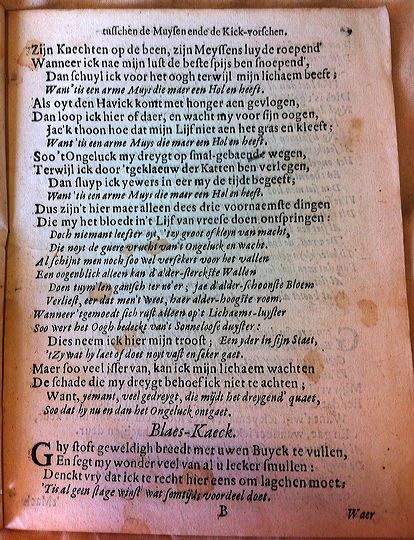 tusschen de Muysen ende de Kick-vorschen.
Zijn Knechten op de been, zijn Meyssens luyde roepend'
Wanneer ick nae mijn lust de beste spijs ben snoepend',
Dan schuyl ick voor het oogh terwijl mijn lichaem beeft;
Want 'tis een arme Muys die maer een Hol en heeft.
Als oyt den Havick komt met honger aen gevlogen,
Dan loop ick hier of daer, en wacht my voor sijn oogen,
Jae'k thoon hoe dat mijn Lijf niet aen het gras en kleeft;
Want 'tis een arme Muys die maer een Hol en heeft.
Soo 't Ongeluck my dreygt op smal-gebaende wegen,
Terwijl ick door 'tgeklaeuw der Katten ben verlegen,
Dan sluyp ick yewers in eer my de tijdt begeeft;
Want 'tis een arme Muys die maer een Hol en heeft.
Dus zijn't hier maer alleen dees drie voornaemste dingen
Die my het bloedt in't Lijf van vreese doen ontspringen:
Doch niemant leefter oyt, 'tzy groot of kleyn van macht,
Die noyt de guere vrucht van't Ongeluck en wacht.
Al schijnt men noch soo wel versekert voor het vallen
Een oogenblick alleen kan d'alder-sterckste Wallen
Doen tuym'len gantsch ter ne'er; jae d'alder-schoonste Bloem
Verliest, eer dat men't weet, haer alder-hoogste roem.
Wanneer 'tgemoedt sich rust alleen op't Lichaems-luyster
Soo wert het Oogh bedeckt van't Sonneloose duyster:
Dies neem ick hier mijn troost; Een yder in sijn Staet,
'tZy wat hy laet of doet noyt vast en seker gaet.
Maer soo veel isser van, kan ick mijn lichaem wachten
De schade die my dreygt behoef ick niet te achten;
Want, yemant, veel gedreygt, die mijdt het dreygend' quaet,
Soo dat hy nu en dan het Ongeluck ontgaet.
Blaes-Kaeck.
Ghy stoft geweldigh breedt met uwen Buyck te vullen,
En segt my wonder veel van al u lecker smullen:
Denckt vry dat ick te recht hier eens om lagchen moet;
'Tis al geen slage winst wat somtijds voordeel doet.
B
Waer